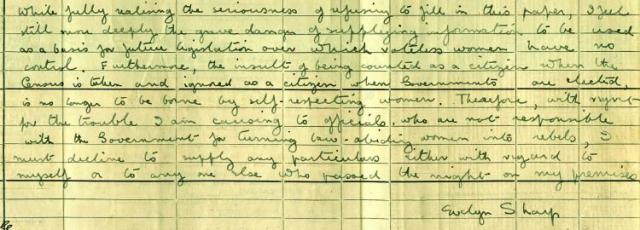 While fully realising the seriousness of refusing to fill in this paper, I feel
still more deeply the grave danger of supplying information to be used
as a basis for future legislation over which voteless women have no
control. Furthermore, the insult of being counted as a citizen when the
Census is taken and ignored as a citizen when Governments are elected,
is no longer to be borne by self-respecting women. Therefore, with regret
for the trouble I am causing to officials, who are not responsible
with the Government for turning law-abiding women into rebels, I
must decline to supply any particulars either with regard to
myself or to any one else who passed the night on my premises
Evelyn Sharp